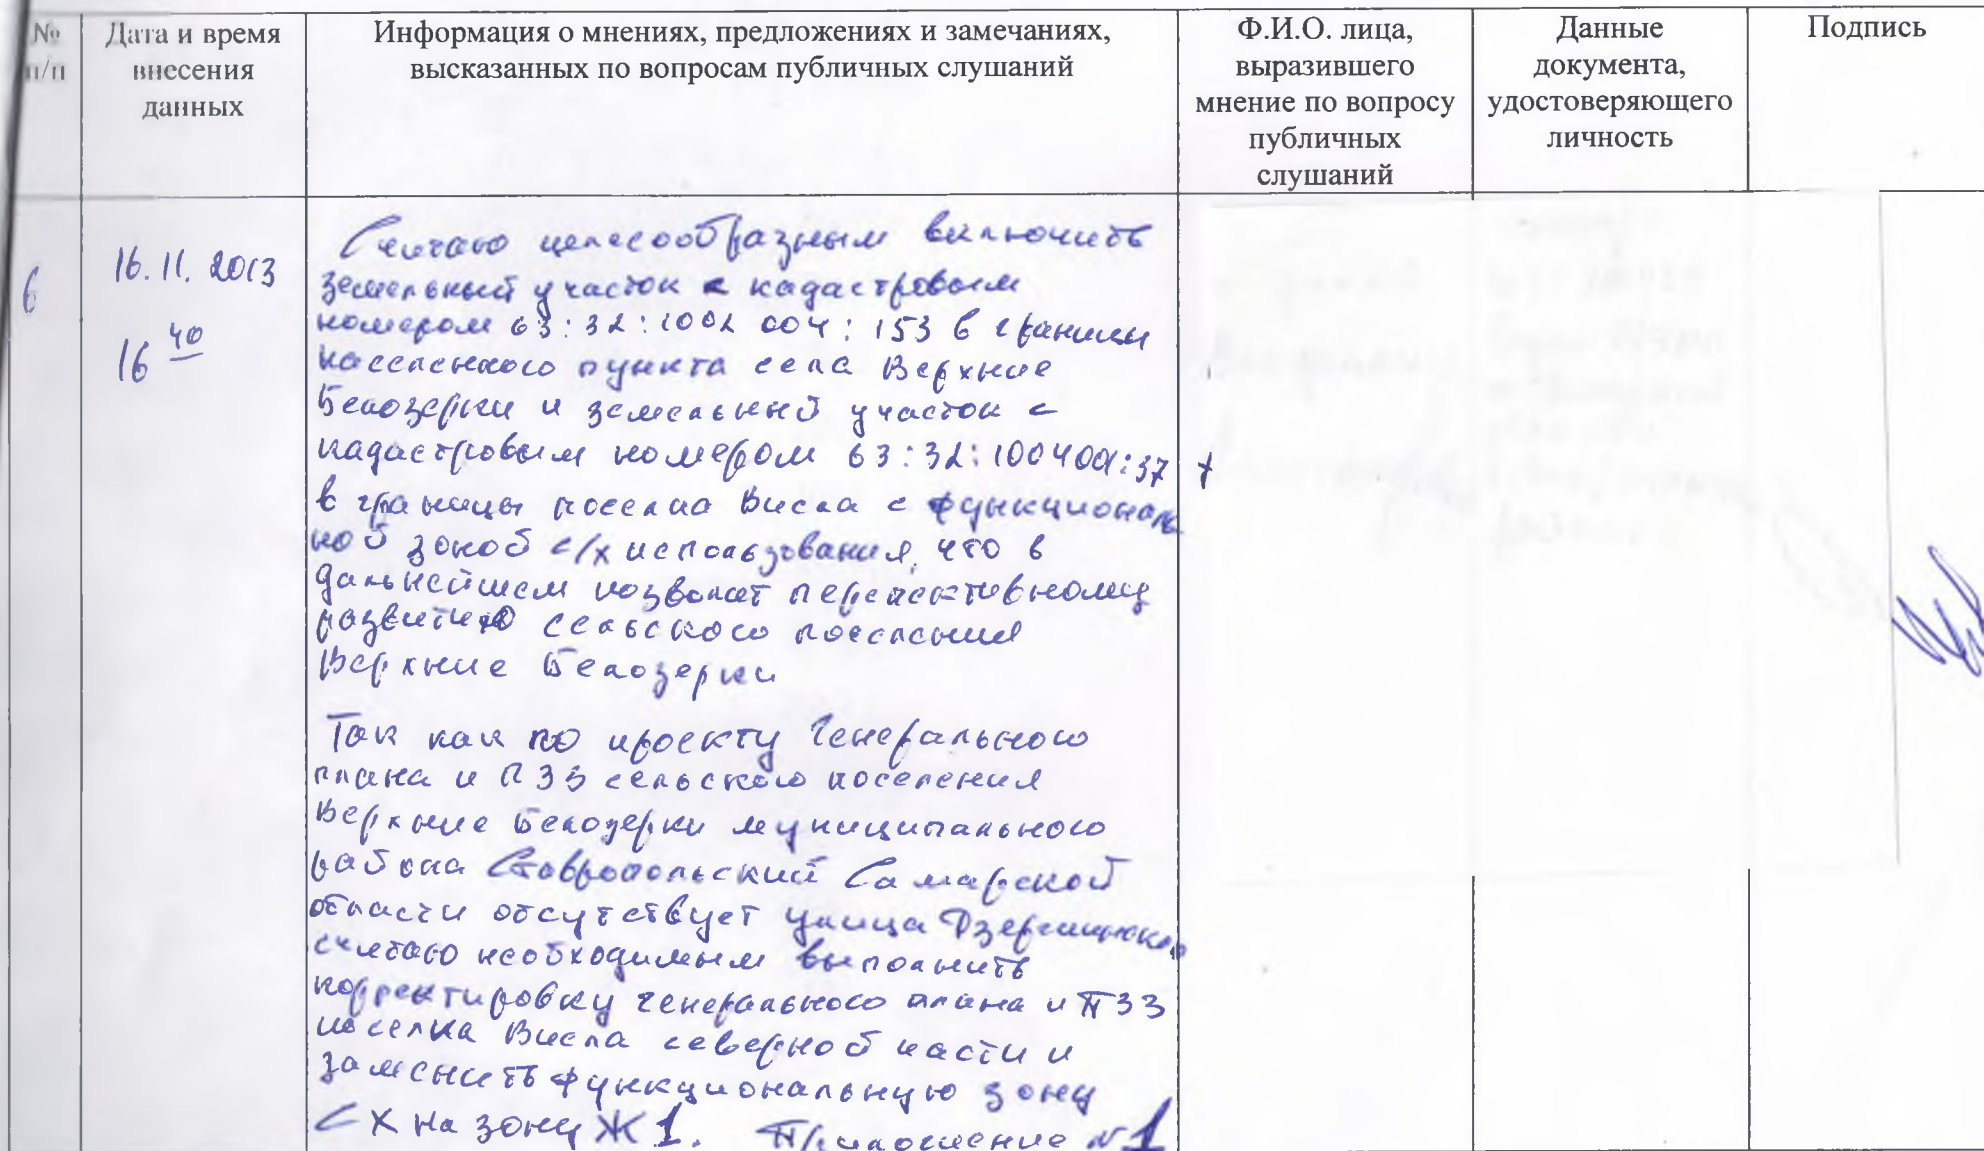 № п/п
Дата и время внесения данных
Информация о мнениях, предложениях и замечаниях, высказанных по вопросам публичных слушаний
Ф.И.О. лица, выразившего мнение по вопросу публичных слушаний
Данные документа, удостоверяющего личность
Подпись
6
16.11.2013
16 40
Считаю целесообразным включить
земельный участок с кадастровым
номером 63:32:1002004:153 в границы
населенного пункта села Верхние
Белозерки и земельный участок с
кадастровым номером 63:32:1004001:37
в границы поселка Висла с функциональ
ной зоной с/х использования, что в
дальнейшем позволит перспективному
развитию сельского поселения
Верхние Белозерки
Так как по проекту Генерального
плана и ПЗЗ сельского поселения
Верхние Белозерки муниципального
района Ставропольский Самарской
области отсутствует улица Дзержинского
считаю необходимым выполнить
корректировку генерального плана и ПЗЗ
поселка Висла северной части и
заменить функциональную зону
СХ на зону Ж1. Приложение №1